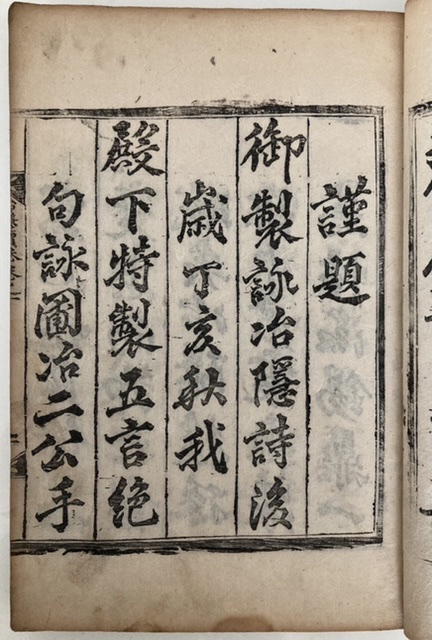 謹題
御製詠冶隱詩後
歲丁亥秋我
殿下特製五言絕
句詠圃冶二公手